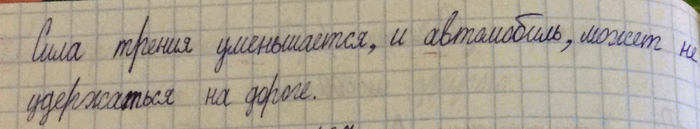 Сила трения уменьшается, и автомобиль, может не
удержаться на дороге.